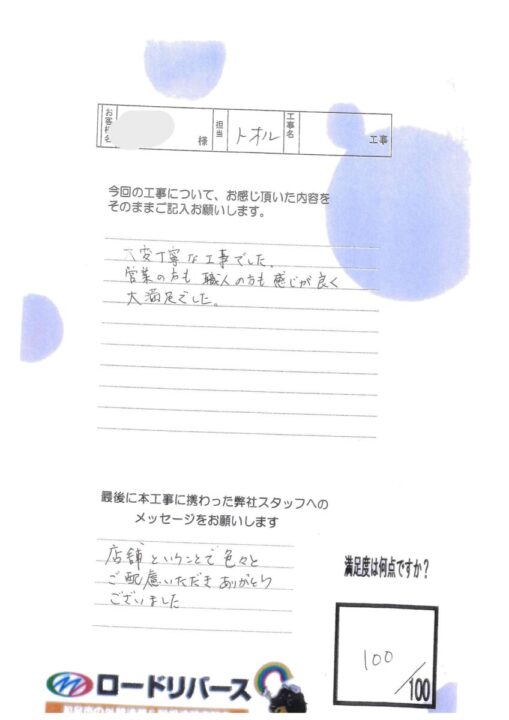 お客様名 様 担当 トオル 工事名 工事
今回の工事について、お感じ頂いた内容を
そのままご記入お願いします。
大変丁寧な工事でした。
営業の方も職人の方も感じが良く
大満足でした。
最後に本工事に携わった弊社スタッフへの
メッセージをお願いします
店舗ということで色々と
ご配慮いただきありがとう
ございました
満足度は何点ですか?
100
/100
ロードリバース